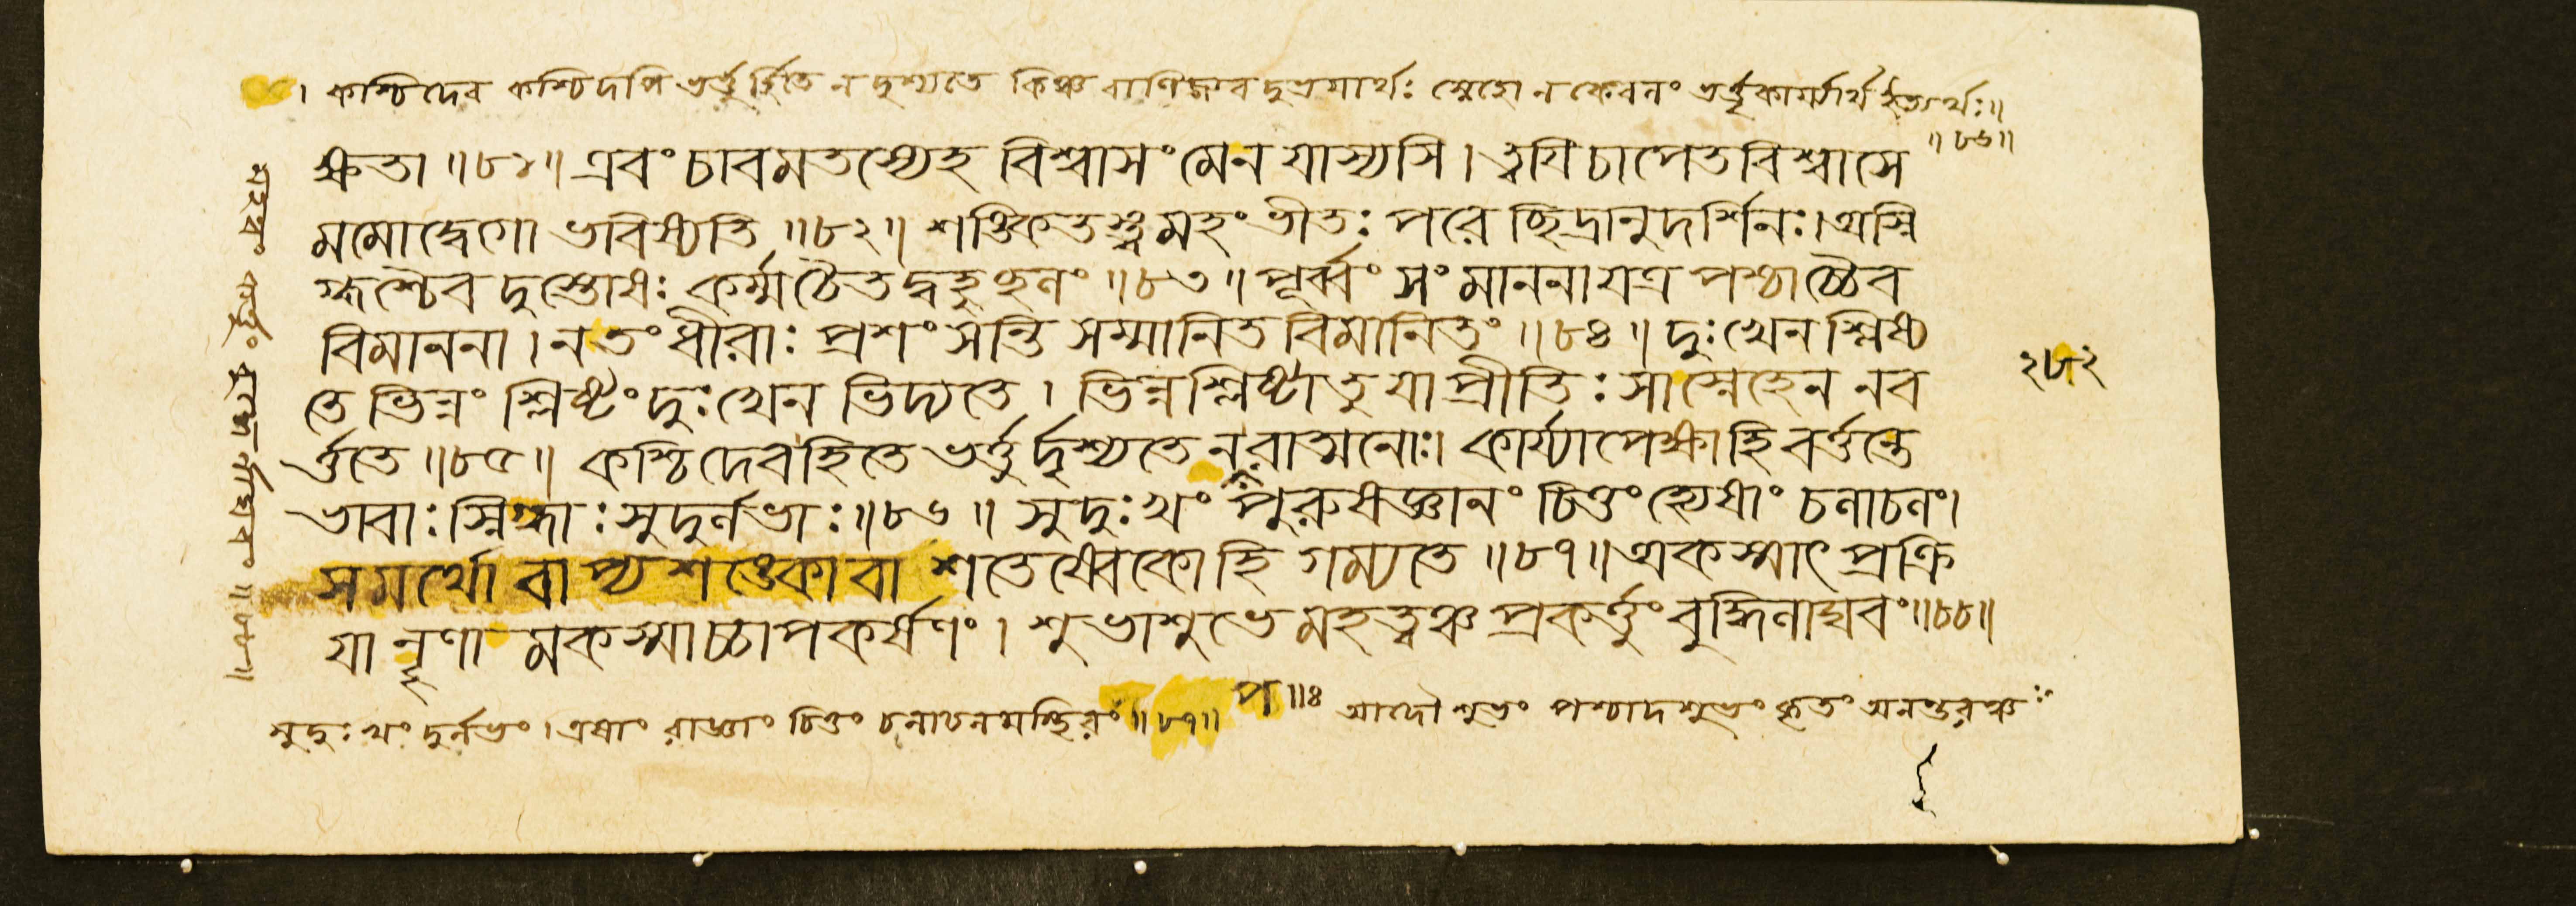 । কশ্চিদেব কশ্চিদপি ভর্ত্তুর্হিতে ন দৃশ্যতে কিঞ্চ বাণিজ্যবদুভয়ার্থঃ স্নেহো ন কেবলং ভর্ত্তৃকামার্থ ইত্যর্থঃ॥
॥৮৬॥
ক্ষতা ॥৮১॥ এবং চাবমতস্যেহ বিশ্বাসং মে ন যাস্যসি । ত্বয়ি চাপেতবিশ্বাসে
মমোদ্বেগো ভবিষ্যতি ॥৮২॥ শঙ্কিতস্ত্বমহং ভীতঃ পরে ছিদ্রানুদর্শিনঃ।অস্নি
গ্ধাশ্চৈব দুস্তোষাঃ কর্ম্ম চৈতদ্বহুচ্ছলং ॥৮৩॥ পূর্ব্বং সংমাননা যত্র পশ্চাচ্চৈব
বিমাননা । ন তং ধীরাঃ প্রশংসন্তি সম্মানিত বিমানিতং ॥৮৪॥ দুঃখেন শ্লিষ্য
তে ভিন্নং শ্লিষ্টং দুঃখেন ভিদ্যতে । ভিন্নশ্লিষ্টা তু যা প্রীতিঃ সা স্নেহেন নব
২৮২
র্ত্ততে ॥৮৫॥ কশ্চিদেব হিতে ভর্ত্তুর্দৃশ্যতে ন রাত্মনোঃ। কার্য্যাপেক্ষা হি বর্ত্তন্তে
ভাবাঃ স্নিগ্ধাঃ সুদুর্লভাঃ॥৮৬॥ সুদুঃখং পুরুষজ্ঞানং চিত্তং হ্যেষাং চলাচলং।
সমর্থো বাপ্যশঙ্কো বা শতেষ্বেকো হি গম্যতে ॥৮৭॥ অকস্মাৎ প্রক্রি
যা নৃণামকস্মাচ্চাপকর্ষণং । শুভাশুভে মহত্ত্বঞ্চ প্রকর্ত্তুং বুদ্ধিলাঘবং॥৮৮॥
সুদুঃখং দুর্লভং । এষাং রাজ্ঞাং চিত্তং চলাচলমস্থিরং ॥৮৭॥ প ॥৪ আদৌ শুভং পশ্চাদশুভং কৃতং অনন্তরঞ্চ